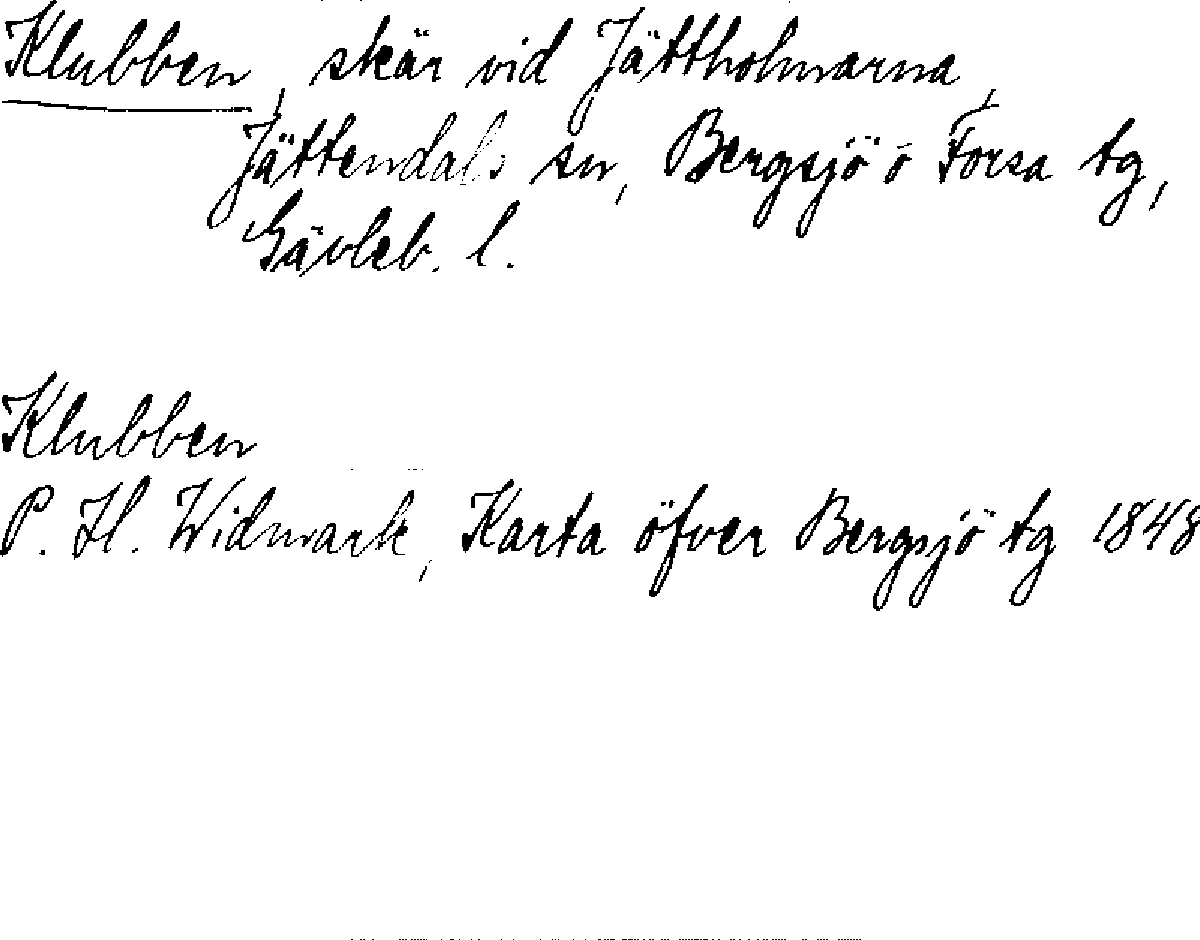 Klubben, skär vid Jättholmarna,
Jättendals sn, Bergsjö o Forsa tg,
Gävleb. l.
Klubben
P. H. Widmark, Karta öfver Bergsjö tg 1848